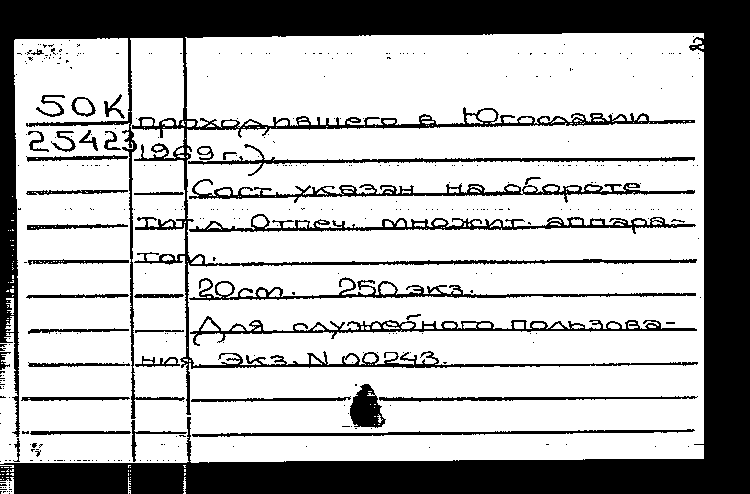 50К
25423
проходившего в Югославии
1969 г.).
Сост. указан на обороте
тит.л. Отпеч. множит. аппара-
том.
20 см. 250 экз.
Для служебного пользова-
ния Экз. N 00243.